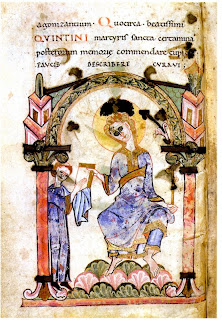 agonizantium · Quocirca · beatissimi
QUINTINI martyris sancta certamina
posterorum memoriae commendare cupi
PAUCIS DESCRIBERE CURAVI ;